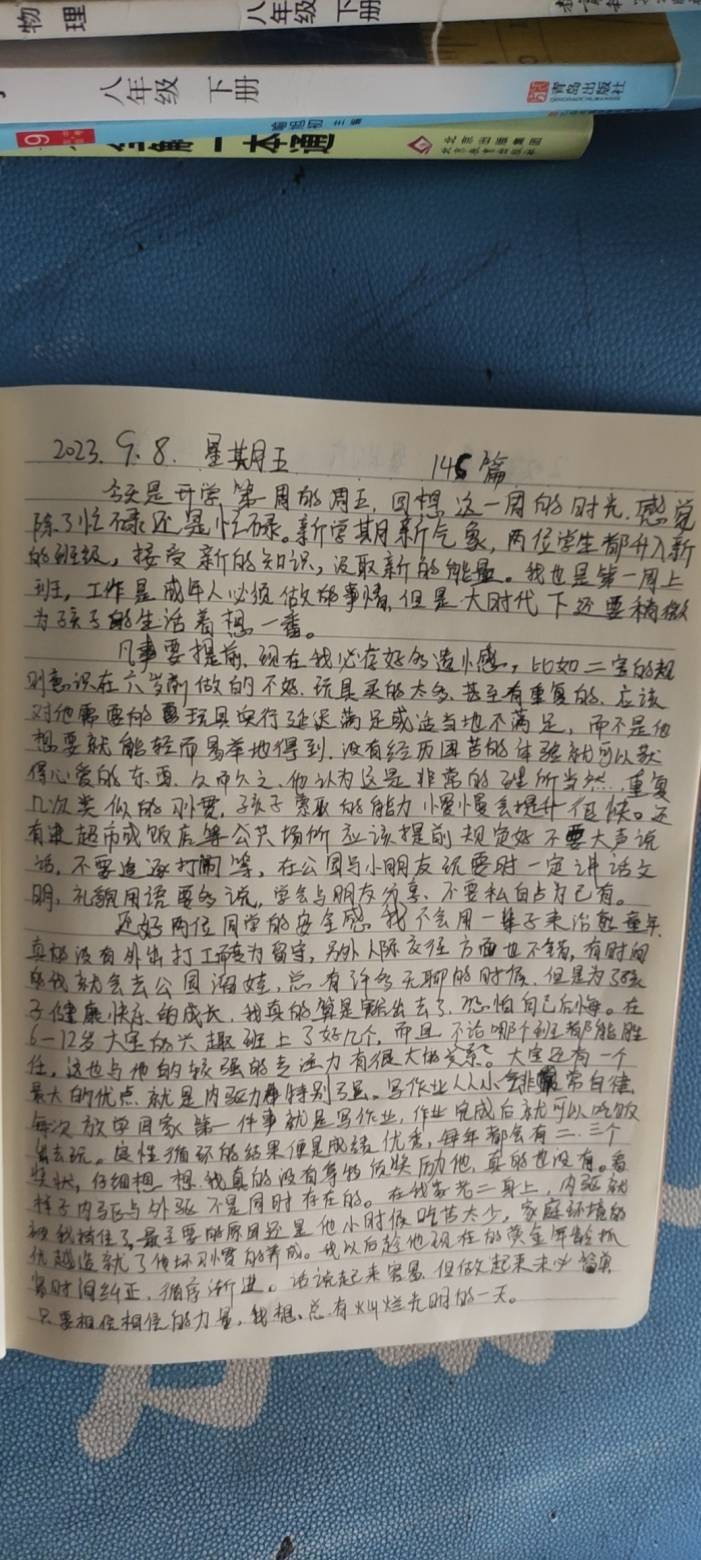 物理 八年级 下册
八年级 下册 青岛出版社
9 全解一本通 主编 北京出版集团
2023.9.8. 星期五 145篇
今天是开学第一周的周五,回想这一周的时光,感觉
除了忙碌还是忙碌。新学期新气象,两位学生都升入新
的班级,接受新的知识,汲取新的能量。我也是第一周上
班,工作是成年人必须做的事情,但是大时代下还要稍微
为孩子的生活着想一番。
凡事要提前,现在我必存好多遗憾感,比如二宝的规
则意识在六岁前做的不好,玩具买的太多,甚至有重复的,应该
对他需要的玩具实行延迟满足或适当地不满足,而不是他
想要就能轻而易举地得到,没有经历困苦的体验就可以获
得心爱的东西,久而久之,他认为这是非常的理所当然,重复
几次类似的习惯,孩子索取的能力慢慢会提升很快。还
有进超市或饭店等公共场所应该提前规定好不要大声说
话,不要追逐打闹等,在公园与小朋友玩耍时一定讲话文
明,礼貌用语要多说,学会与朋友分享,不要私自占为己有。
还好两位同学的安全感我不会用一辈子来治愈童年,
真的没有外出打工转为留守,另外人际交往方面也不错,有时间
的我就会去公园遛娃,总有许多无聊的时候,但是为了孩
子健康快乐的成长,我真的算是豁出去了,恐怕自己后悔。在
6-12岁大宝的兴趣班上了好几个,而且不论哪个班都能胜
任,这也与他的较强的专注力有很大的关系。大宝还有一个
最大的优点就是内驱力特别强。写作业从小会非常自律,
每次放学回家第一件事就是写作业,作业完成后就可以吃饭
去玩。良性循环的结果便是成绩优秀,每年都会有二、三个
奖状,仔细想想我真的没有等物质奖励他,真的也没有。看
样子内驱与外驱不是同时存在的。在我家老二身上,内驱就
被我掐住了,最主要的原因还是他小时候吃苦太少,家庭环境的
优越造就了他坏习惯的养成。我以后趁他现在的黄金年龄抓
紧时间纠正,循序渐进。话说起来容易,但做起来未必简单
只要相信相信的力量,我想,总有灿烂光明的一天。